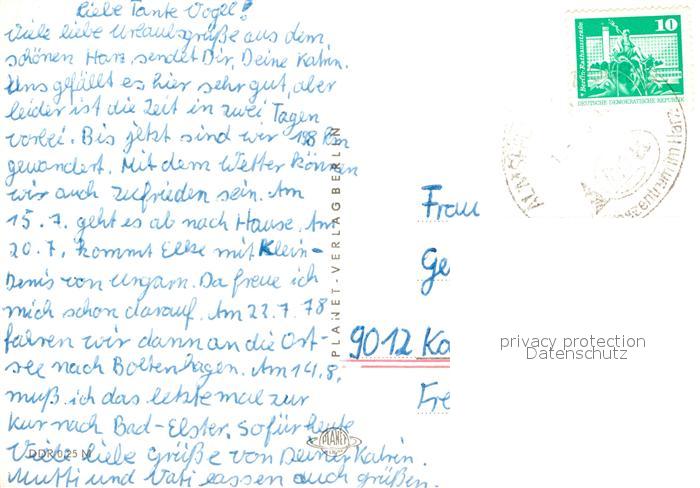 Liebe Tante Vogel!
Viele liebe Urlaubsgrüße aus dem
schönen Harz sendet Dir, Deine Katrin.
Uns gefällt es hier sehr gut, aber
leider ist die Zeit in zwei Tagen
vorbei. Bis jetzt sind wir 198 km
gewandert. Mit dem Wetter können
wir auch zufrieden sein. Am
15.7. geht es ab nach Hause. Am
20.7. kommt Elke mit Klein-
Denis von Ungarn. Da freue ich
mich schon darauf. Am 22.7.78
fahren wir dann an die Ost-
see nach Boltenhagen. Am 14.8.
muß ich das letzte mal zur
Kur nach Bad-Elster. So für heute
Viele liebe Grüße von Deiner Katrin.
Mutti und Vati lassen auch grüßen.
DDR 0,25 M
PLANET-VERLAG BERLIN
PLANET
10
Berlin, Rathausstraße
DEUTSCHE DEMOKRATISCHE REPUBLIK
zentrum im Harz
Frau
Ge
9012 Ka
Fre
privacy protection
Datenschutz